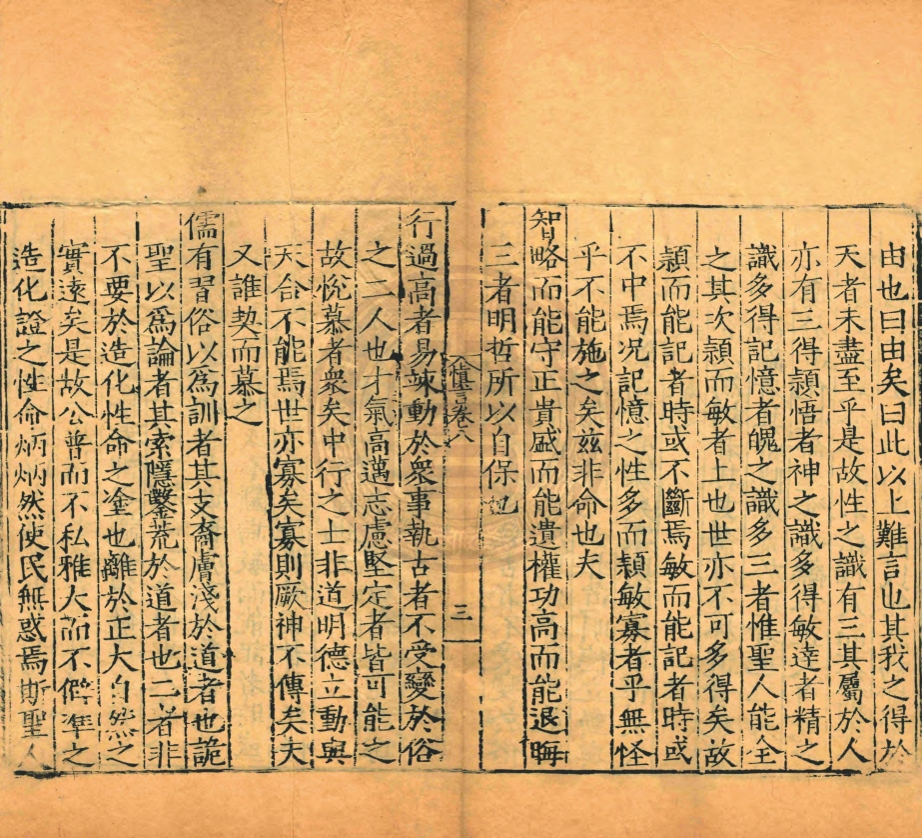 由也曰由矣曰此以上難言也其我之得於
天者未盡至乎是故性之識有三其屬於人
亦有三得穎悟者神之識多得敏達者精之
識多得記憶者魄之識多三者惟聖人能全
之其次穎而敏者上也世亦不可多得矣故
穎而能記者時或不斷焉敏而能記者時或
不中焉况記憶之性多而穎敏寡者乎無怪
乎不能施之矣茲非命也夫
智略而能守正貴盛而能遺權功高而能退晦
三者明哲所以自保也
慎言卷八
三
行過高者易竦動於衆事執古者不受變於俗
之二人也才氣高邁志慮堅定者皆可能之
故悅慕者衆矣中行之士非道明德立動與
天合不能焉世亦寡矣寡則厥神不傳矣夫
又誰契而慕之
儒有習俗以爲訓者其支裔膚淺於道者也詭
聖以爲論者其索隱鑿荒於道者也二者非
不要於造化性命之塗也離於正大自然之
實遠矣是故公普而不私雅大而不僻準之
造化證之性命炳炳然使民無惑焉斯聖人